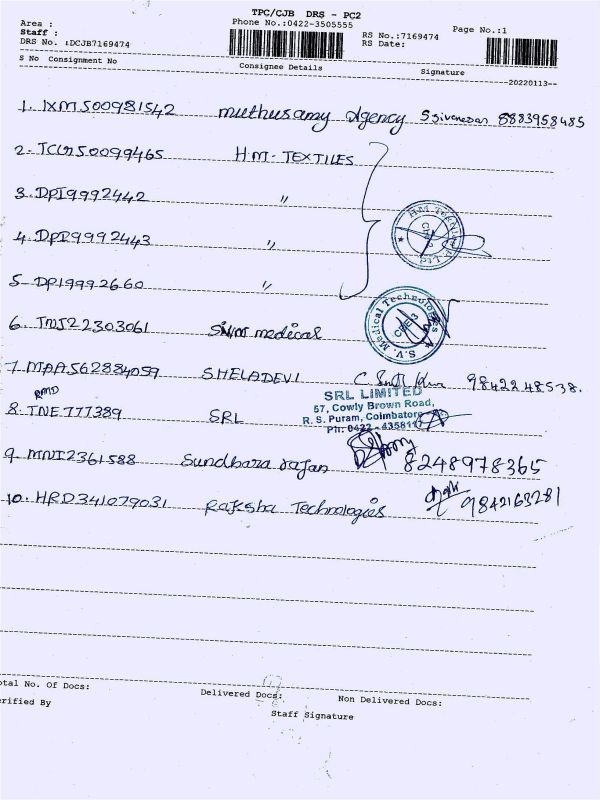 TPC/CJB DRS - PC2
Area :
Phone No.:0422-3505555
Page No.:1
Staff :
RS No.:7169474
DRS No. :DCJB7169474
RS Date:
S No Consignment No
Consignee Details
Signature
--20220113--
1. IXM500981542 muthusamy Agency S sivanesan 8883958485
2. TCU250099465 H.M- TEXTILES
3. DPI9992442 "
4. DPI9992443 "
5. DPI9992660 "
6. TMJ22303061 SVM medical
S.V. Medical Technologies
CBE 3
7. MAA562884059 SHELADEVI 9842248538.
SRL LIMITED
57, Cowly Brown Road,
R. S. Puram, Coimbatore
Ph: 0422 - 4358117
8. TNE777389 SRL
9. MNI2361588 Sundhara rajan 8248978365
10. HRD341079031 Raksha Technologies 9842163281
otal No. Of Docs:
Delivered Docs:
Non Delivered Docs:
erified By
Staff Signature